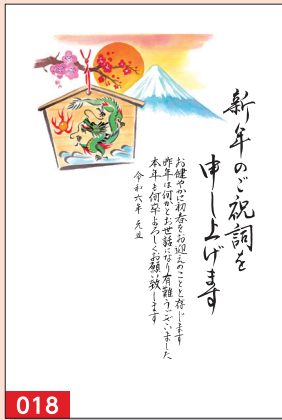 新年のご祝詞を
申し上げます
お健やかに初春をお迎えのことと存じます
昨年は何かとお世話になり有難うございました
本年も何卒よろしくお願い致します
令和六年 元旦
018